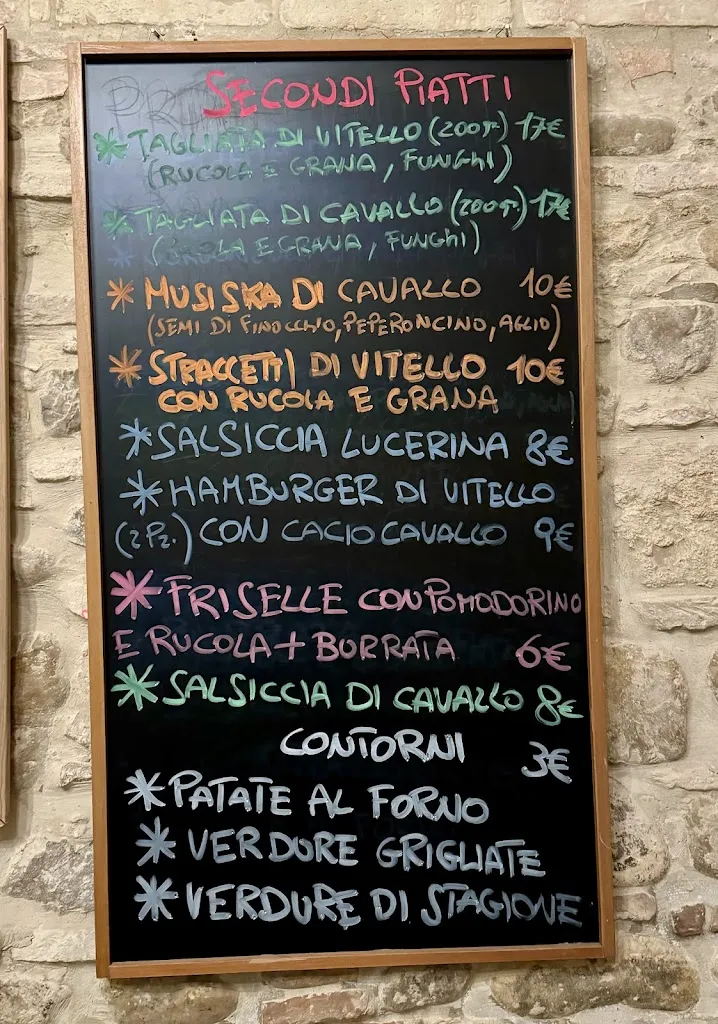 SECONDI PIATTI
* TAGLIATA DI VITELLO (200gr.) 17€
(RUCOLA E GRANA, FUNGHI)
* TAGLIATA DI CAVALLO (200gr.) 17€
(RUCOLA E GRANA, FUNGHI)
* MUSISKA DI CAVALLO 10€
(SEMI DI FINOCCHIO, PEPERONCINO, AGLIO)
* STRACCETTI DI VITELLO 10€
CON RUCOLA E GRANA
* SALSICCIA LUCERINA 8€
* HAMBURGER DI VITELLO
(2 Pz.) CON CACIOCAVALLO 9€
* FRISELLE CON POMODORINO
E RUCOLA + BURRATA 6€
* SALSICCIA DI CAVALLO 8€
CONTORNI 3€
* PATATE AL FORNO
* VERDURE GRIGLIATE
* VERDURE DI STAGIONE